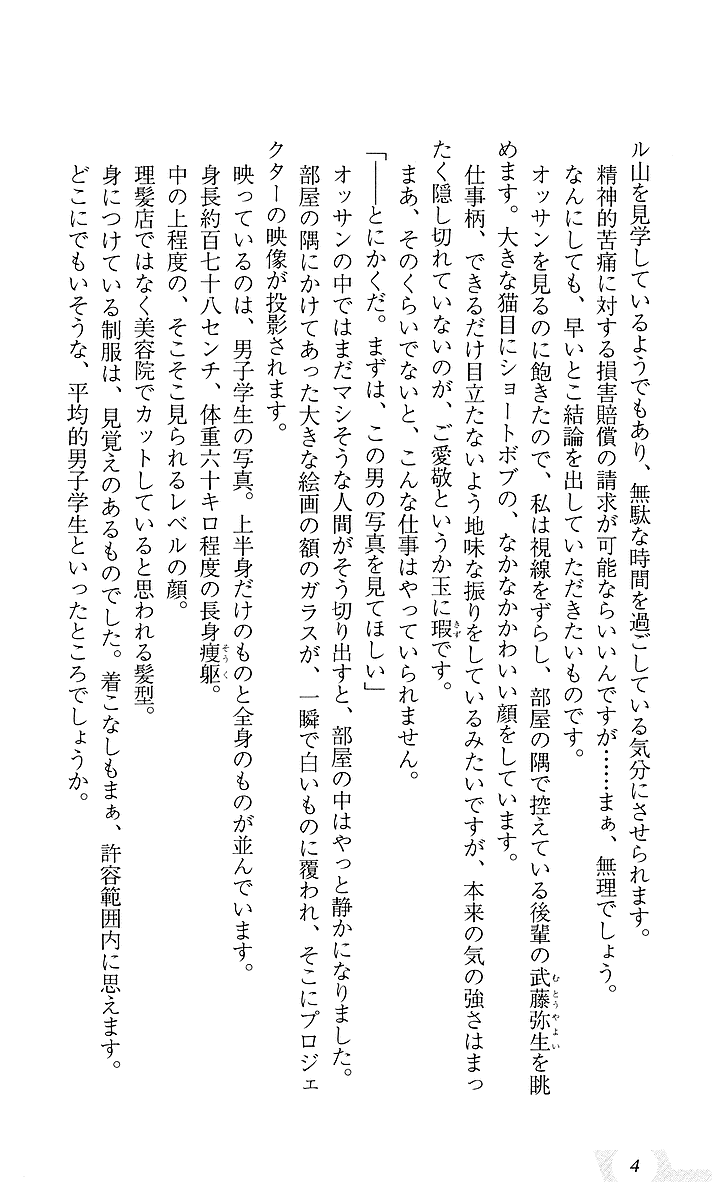 ル山を見学しているようでもあり、無駄な時間を過ごしている気分にさせられます。
精神的苦痛に対する損害賠償の請求が可能ならいいんですが……まぁ、無理でしょう。
なんにしても、早いとこ結論を出していただきたいものです。
オッサンを見るのに飽きたので、私は視線をずらし、部屋の隅で控えている後輩の武藤弥生を眺
めます。大きな猫目にショートボブの、なかなかかわいい顔をしています。
仕事柄、できるだけ目立たないよう地味な振りをしているみたいですが、本来の気の強さはまっ
たく隠し切れていないのが、ご愛敬というか玉に瑕です。
まあ、そのくらいでないと、こんな仕事はやっていられません。
「――とにかくだ。まずは、この男の写真を見てほしい」
オッサンの中ではまだマシそうな人間がそう切り出すと、部屋の中はやっと静かになりました。
部屋の隅にかけてあった大きな絵画の額のガラスが、一瞬で白いものに覆われ、そこにプロジェ
クターの映像が投影されます。
映っているのは、男子学生の写真。上半身だけのものと全身のものが並んでいます。
身長約百七十八センチ、体重六十キロ程度の長身痩躯。
中の上程度の、そこそこ見られるレベルの顔。
理髪店ではなく美容院でカットしていると思われる髪型。
身につけている制服は、見覚えのあるものでした。着こなしもまぁ、許容範囲内に思えます。
どこにでもいそうな、平均的男子学生といったところでしょうか。
むとうやよい
きず
そうく
4